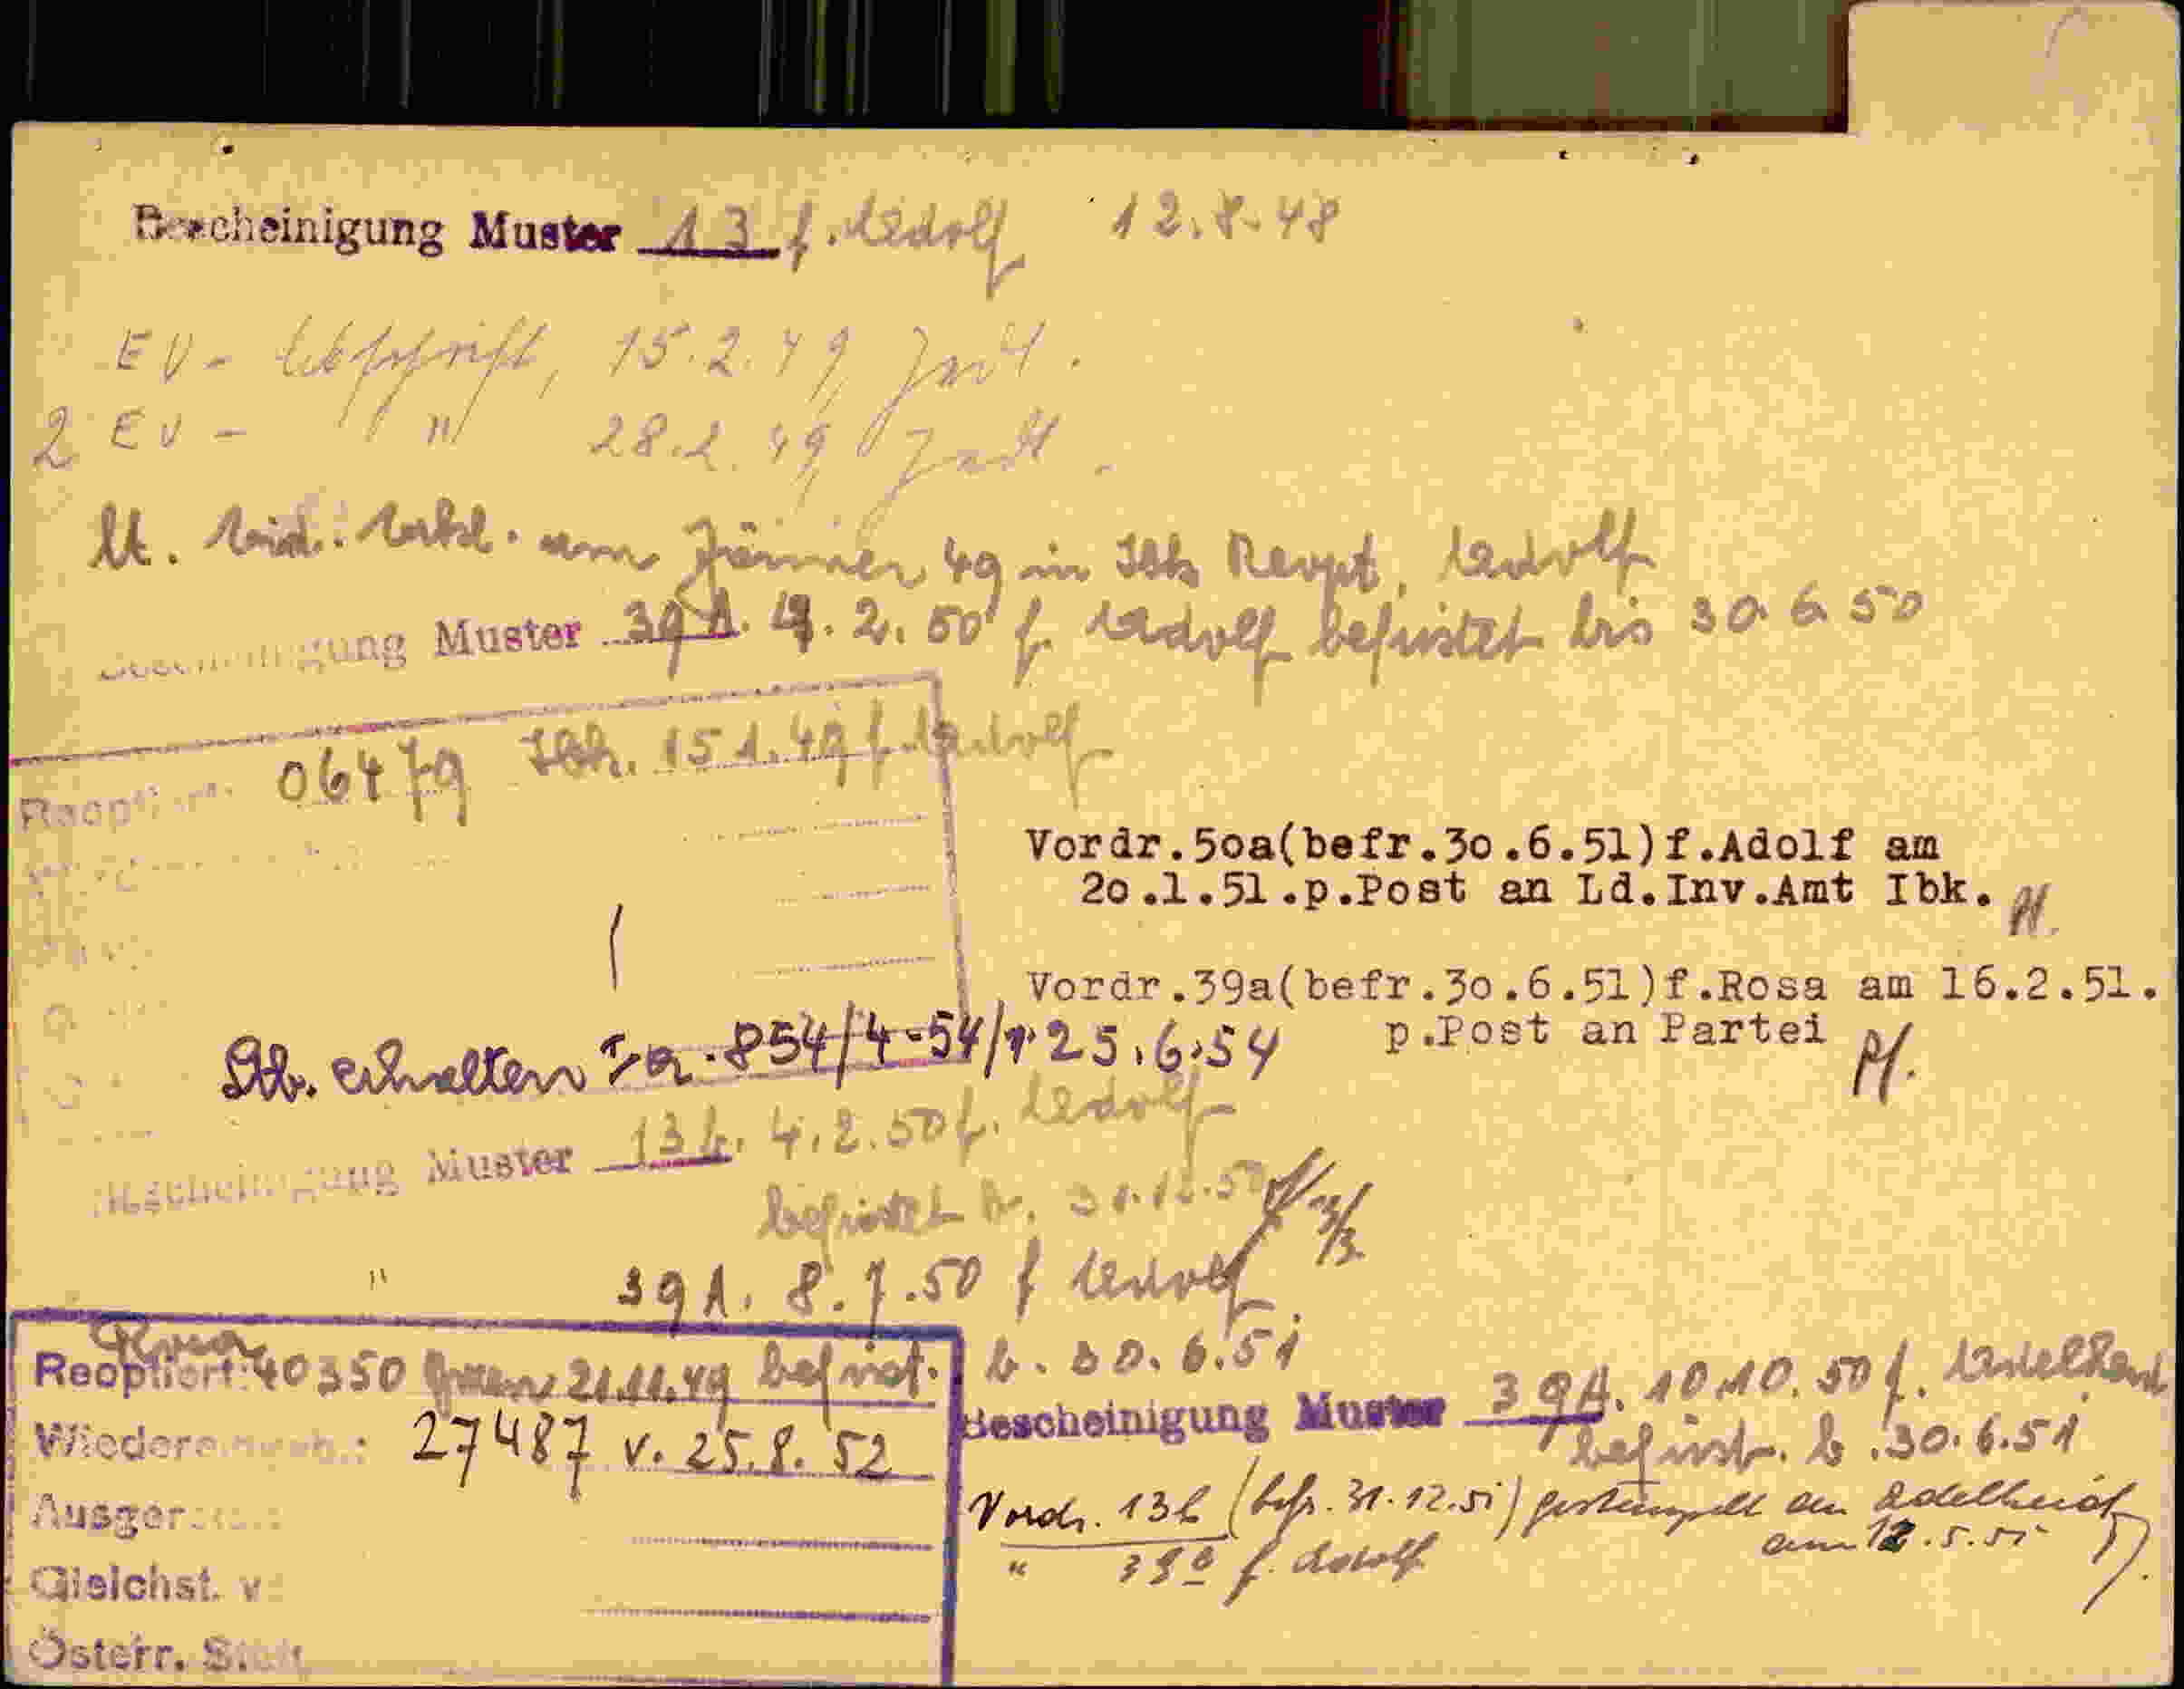 Bescheinigung Muster 13 f. Adolf 12.8.48
EV - Abschrift, 15.2.49
2 EV - " 28.2.49
lt. am Jänner 49 in Ibk Reopt. Adolf
Bescheinigung Muster 39A. 4.2.50 f. Adolf befristet bis 30.6.50
Reoptiert: 06479 Ibk. 15.1.49 f. Adolf
Vordr.50a(befr.30.6.51)f.Adolf am
20.1.51.p.Post an Ld.Inv.Amt Ibk.
Vordr.39a(befr.30.6.51)f.Rosa am 16.2.51.
p.Post an Partei
Stb. erhalten Ia-854/4-54/v. 25.6.54
Bescheinigung Muster 13b. 4.2.50 f. Adolf
befristet b. 31.12.50
" 39A. 8.7.50 f Adolf
b. 30.6.51
Rosa
Reoptiert: 40350 21.11.49 befrist.
Wiedereinb.: 27487 v. 25.8.52
Bescheinigung Muster 39A. 10.10.50 f. Adelheid
befrist. b. 30.6.51
Ausger
Vordr. 13b (befr. 31.12.51) gestempelt an Adelheid
am 12.5.51
" 39a f. Adolf
Gleichst. v
Österr. St